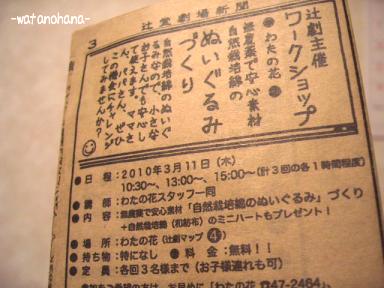 ~watanohana~
3
辻堂劇場新聞
辻劇主催
ワークショップ
●わたの花●
無農薬で安心素材
自然栽培綿の
ぬいぐるみ
づくり
自然栽培綿のぬいぐ
るみなので、小さな
お子さんでも安心し
て使えます。ママさ
ん、パパさん、ぜひ
この機会にチャレンジ
してみませんか？
●日程：2010年3月11日（木）
10:30〜、13:00〜、15:00〜（計3回の各1時間程度）
●講師：わたの花スタッフ一同
●内容：無農薬で安心素材「自然栽培綿のぬいぐるみ」づくり
＋自然栽培綿（和紡布）のミニハートもプレゼント！
●場所：わたの花（辻劇マップ❹）
●持ち物：特になし ●料金：無料！！
●定員：各回3名様まで（お子様連れも可）
参加をご希望の方は、お早めに「わたの花☎47-2464」